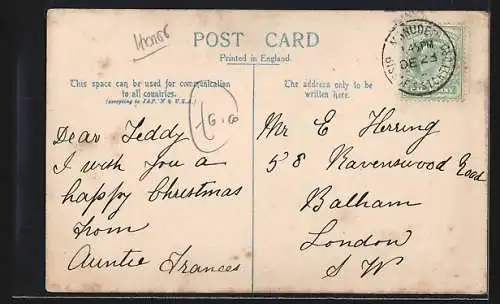 POST CARD
Printed in England.
This space can be used for communication
to all countries.
(excepting to JAPAN & U.S.A.)
The address only to be
written here.
MANUDEN
45PM
DE 23
Dear Teddy
I wish you a
happy Christmas
from
Auntie Frances
Mr E Herring
58 Ravenswood Road
Balham
London
S W